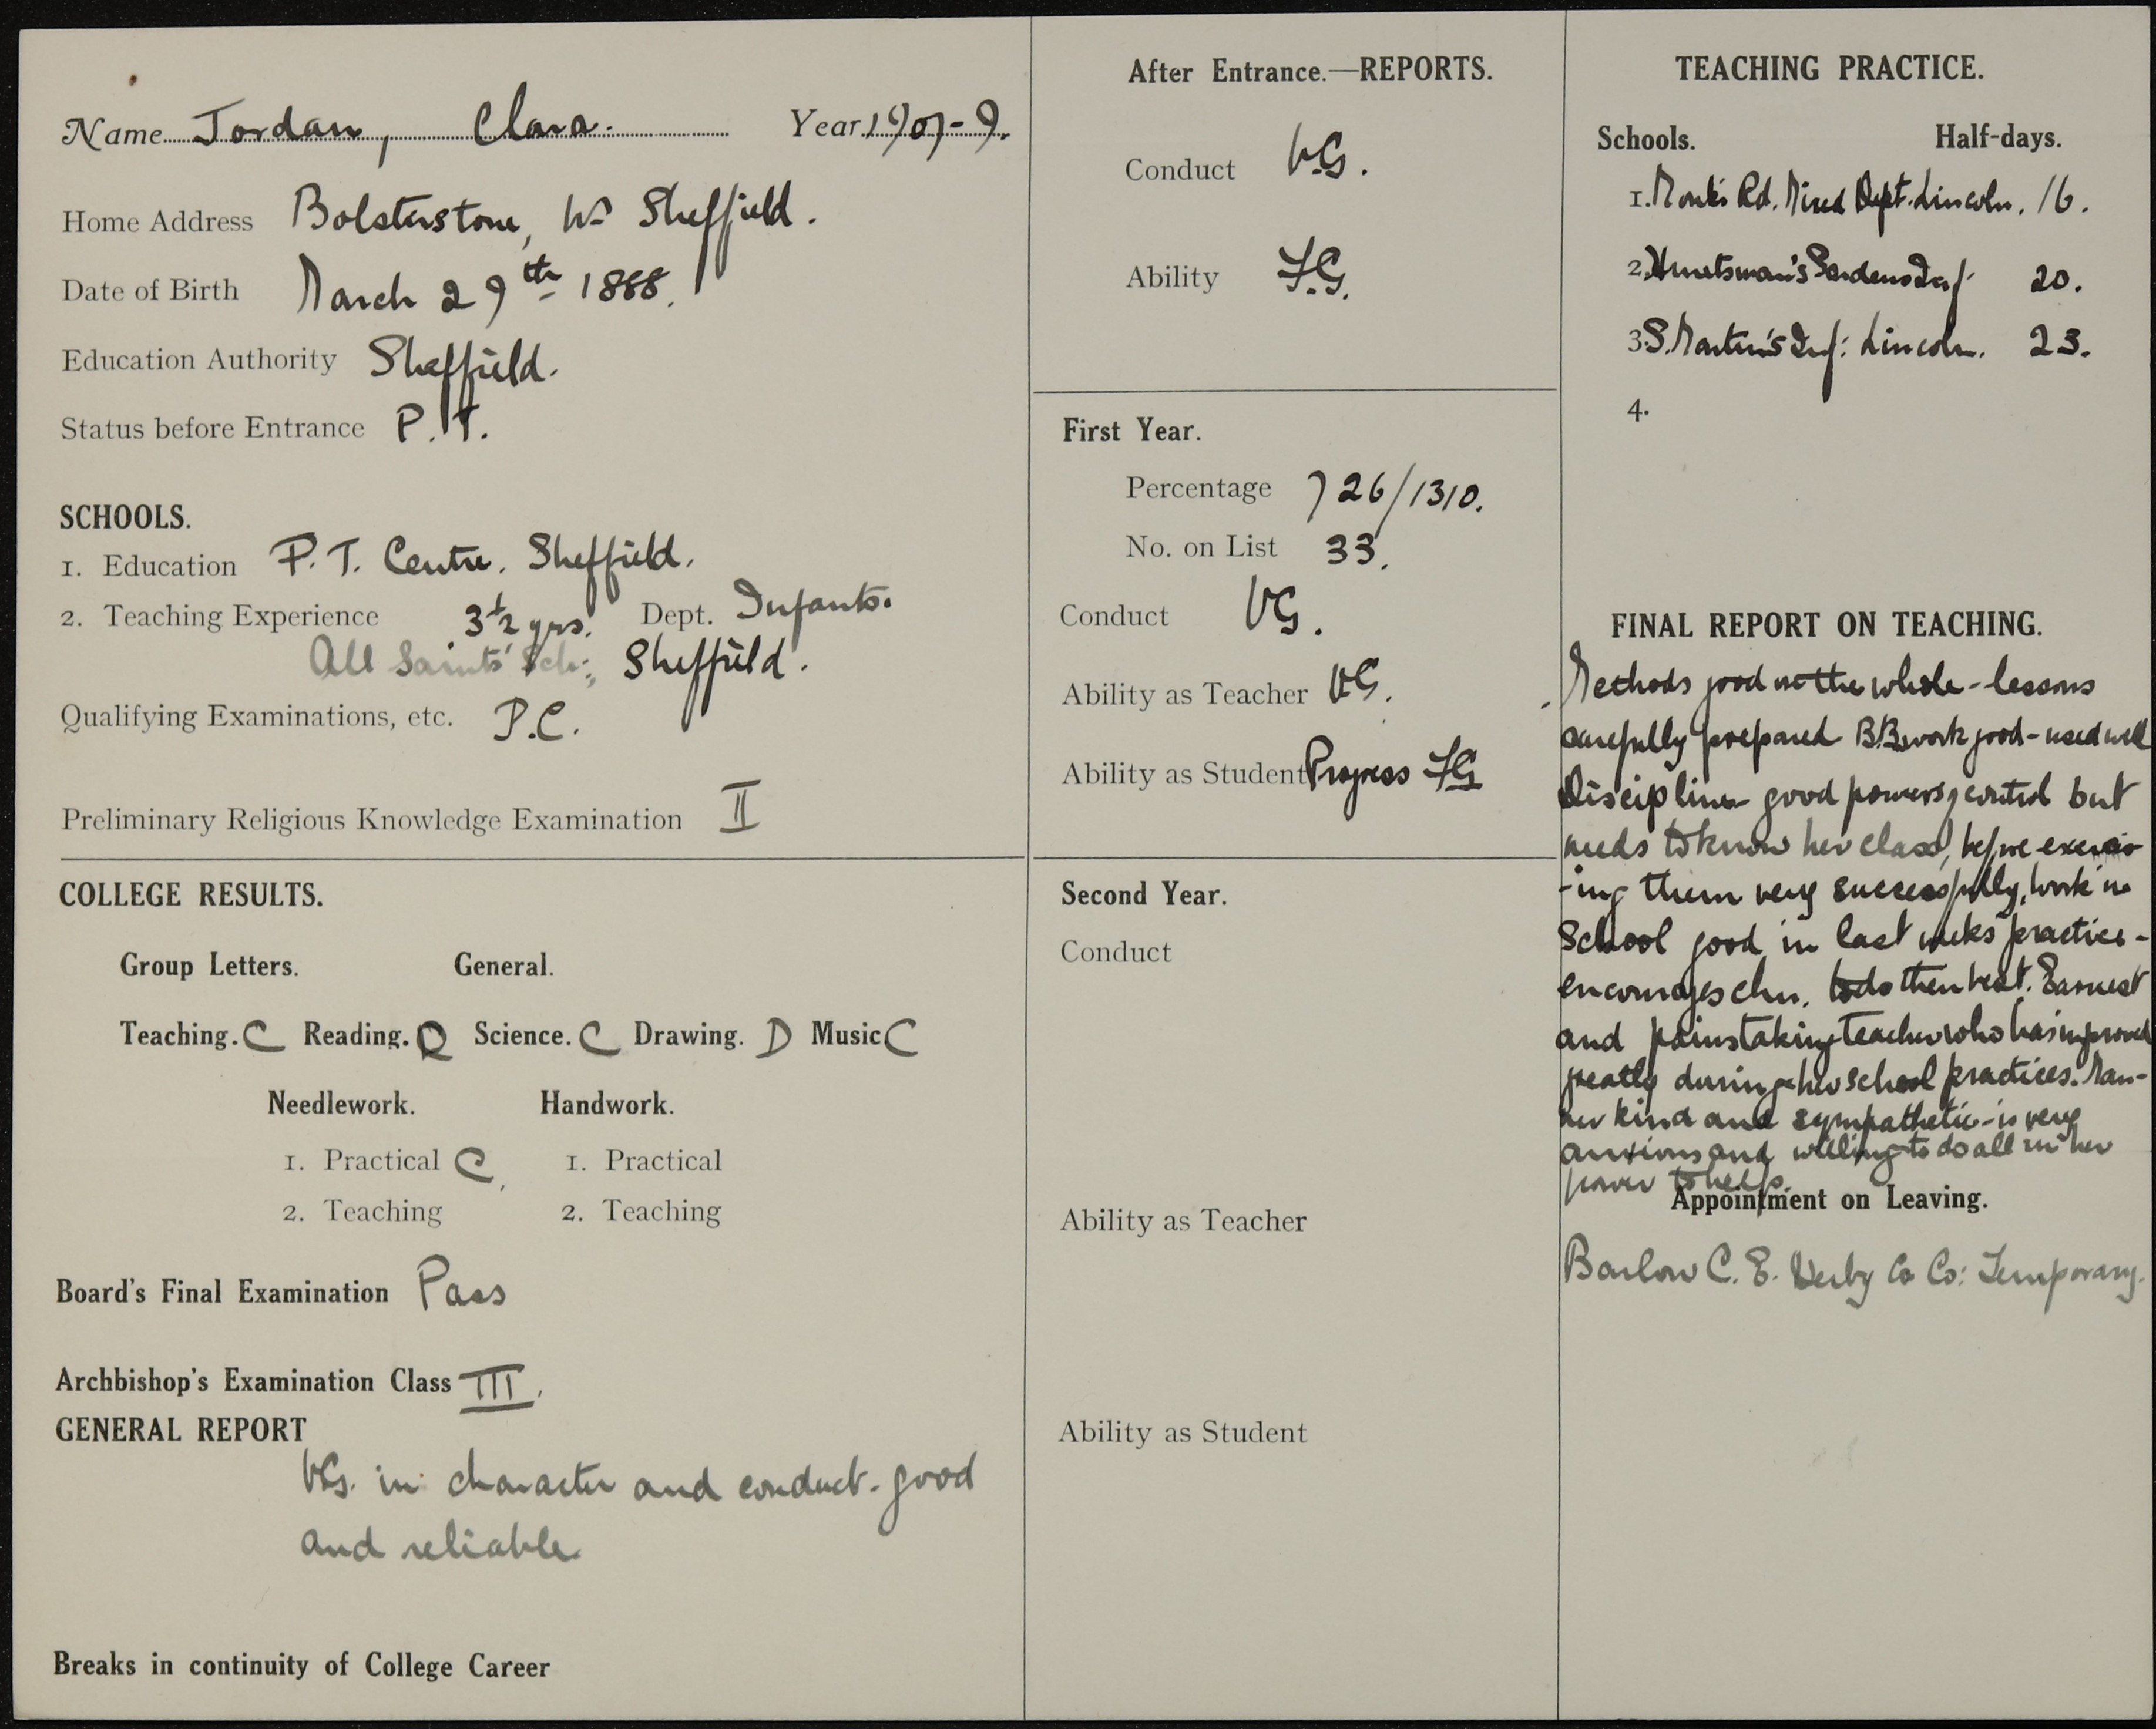 Name Jordan, Clara. Year 1907-9.
Home Address Bolsterstone, Nr Sheffield.
Date of Birth March 29th 1888.
Education Authority Sheffield.
Status before Entrance P.T.
SCHOOLS.
1. Education P.T. Centre, Sheffield.
2. Teaching Experience 3½ yrs. Dept. Infants.
All Saints' Sch:, Sheffield.
Qualifying Examinations, etc. P.C.
Preliminary Religious Knowledge Examination II
COLLEGE RESULTS.
Group Letters. General.
Teaching. C Reading. Science. C Drawing. D Music C
Needlework. Handwork.
1. Practical C, 1. Practical
2. Teaching 2. Teaching
Board's Final Examination Pass
Archbishop's Examination Class III.
GENERAL REPORT
VG. in character and conduct - good
and reliable
Breaks in continuity of College Career
After Entrance.—REPORTS.
Conduct V.G.
Ability F.G.
First Year.
Percentage 726/1310.
No. on List 33.
Conduct VG.
Ability as Teacher VG.
Ability as Student Progress FG
Second Year.
Conduct
Ability as Teacher
Ability as Student
TEACHING PRACTICE.
Schools. Half-days.
1. Monk's Rd. Mixed Dept. Lincoln. 16.
2. Huntsman's Gardens Inf: 20.
3. S. Martin's Inf: Lincoln. 23.
4.
FINAL REPORT ON TEACHING.
Methods good on the whole - lessons
carefully prepared B.B. work good - used well
Discipline - good powers of control but
needs to know her class, before exercis-
-ing them very successfully, work in
School good in last weeks practice -
encourages chn. to do their best. Earnest
and painstaking teacher who has improved
greatly during her school practices. Man-
ner kind and sympathetic - is very
anxious and willing to do all in her
power to help.
Appointment on Leaving.
Barlow C.E. Derby Co Co: Temporary.